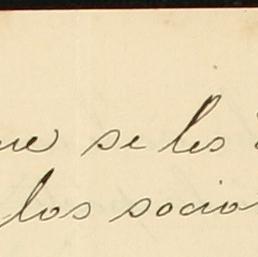 se les
los socio